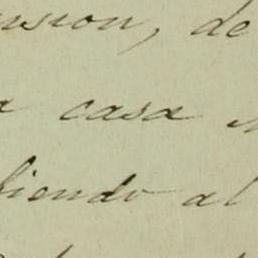 nsion, de
a casa
fiendo al